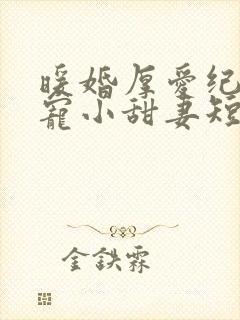 暖婚厚爱纪
宠小甜妻短
金鉄霖